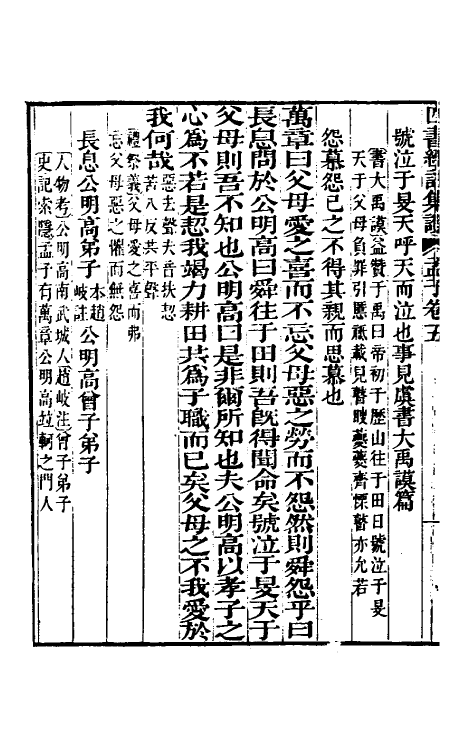 四書經註集證 孟子卷五
號泣于旻天呼天而泣也事見虞書大禹謨篇
書大禹謨益贊于禹曰帝初于歷山往于田日號泣于旻
天于父母負罪引慝祗載見瞽瞍夔夔齊慄瞽亦允若
怨慕怨己之不得其親而思慕也
萬章曰父母愛之喜而不忘父母惡之勞而不怨然則舜怨乎曰
長息問於公明高曰舜往于田則吾既得聞命矣號泣于旻天于
父母則吾不知也公明高曰是非爾所知也夫公明高以孝子之
心爲不若是恝我竭力耕田共爲子職而已矣父母之不我愛於
我何哉 惡去聲夫音扶恝苦八反共平聲
禮祭義父母愛之喜而弗
忘父母惡之懼而無怨
長息公明高弟子 本趙岐註 公明高曾子弟子
人物考公明高南武城人趙岐注曾子弟子
史記索隱孟子有萬章公明高竝軻之門人